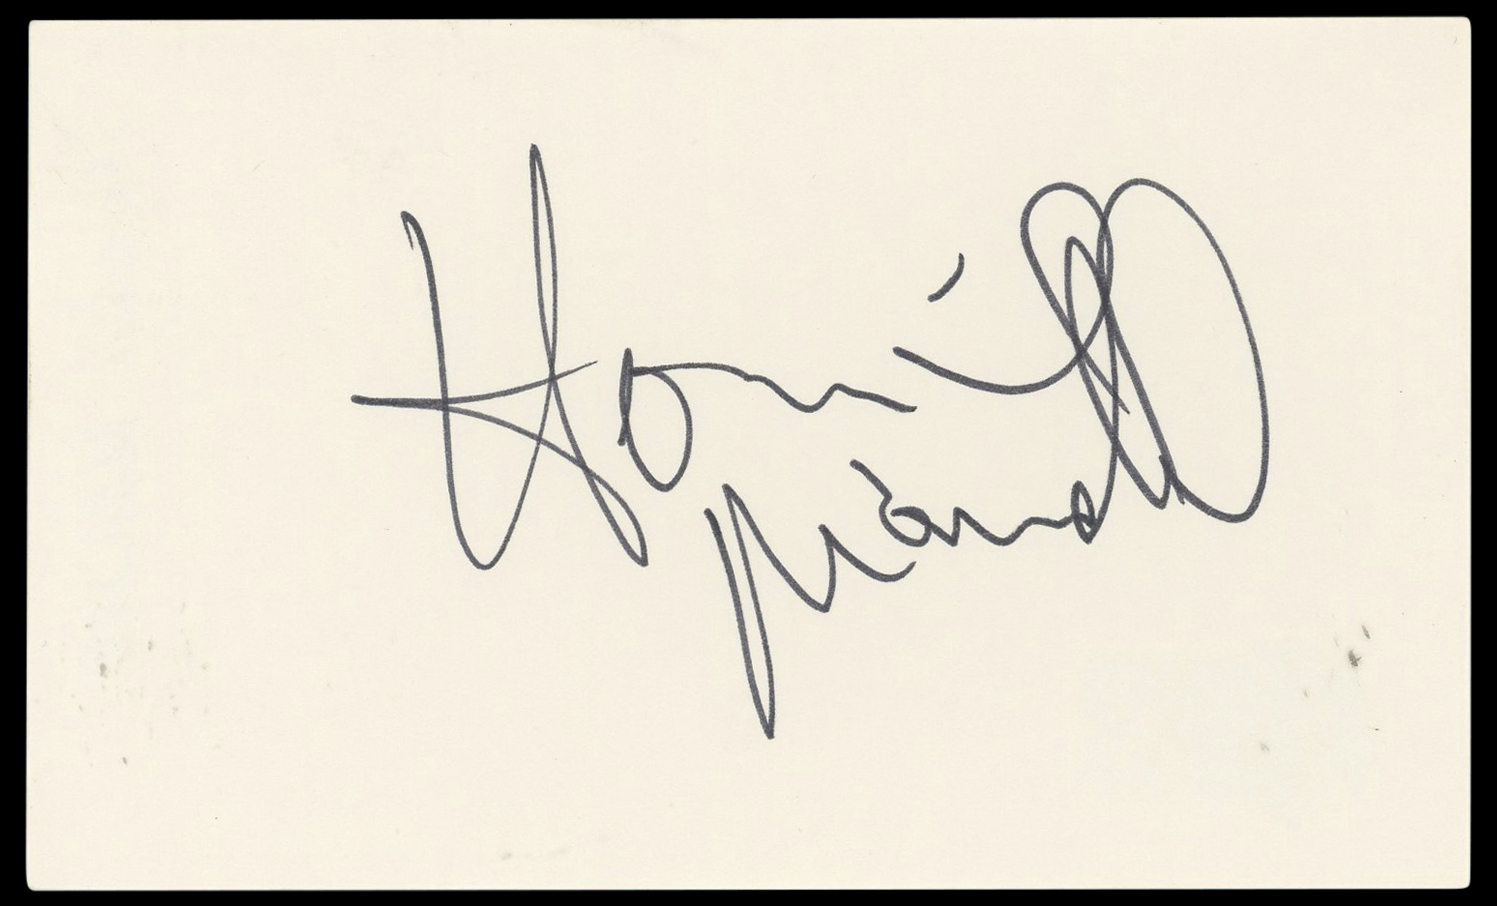 Howie
Mandel